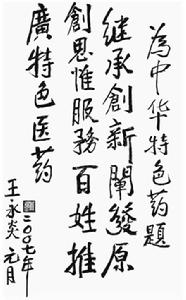 为中华特色药题
继承创新闡發原
創思惟服務百姓推
廣特色医药
王永炎
二〇〇七年元月